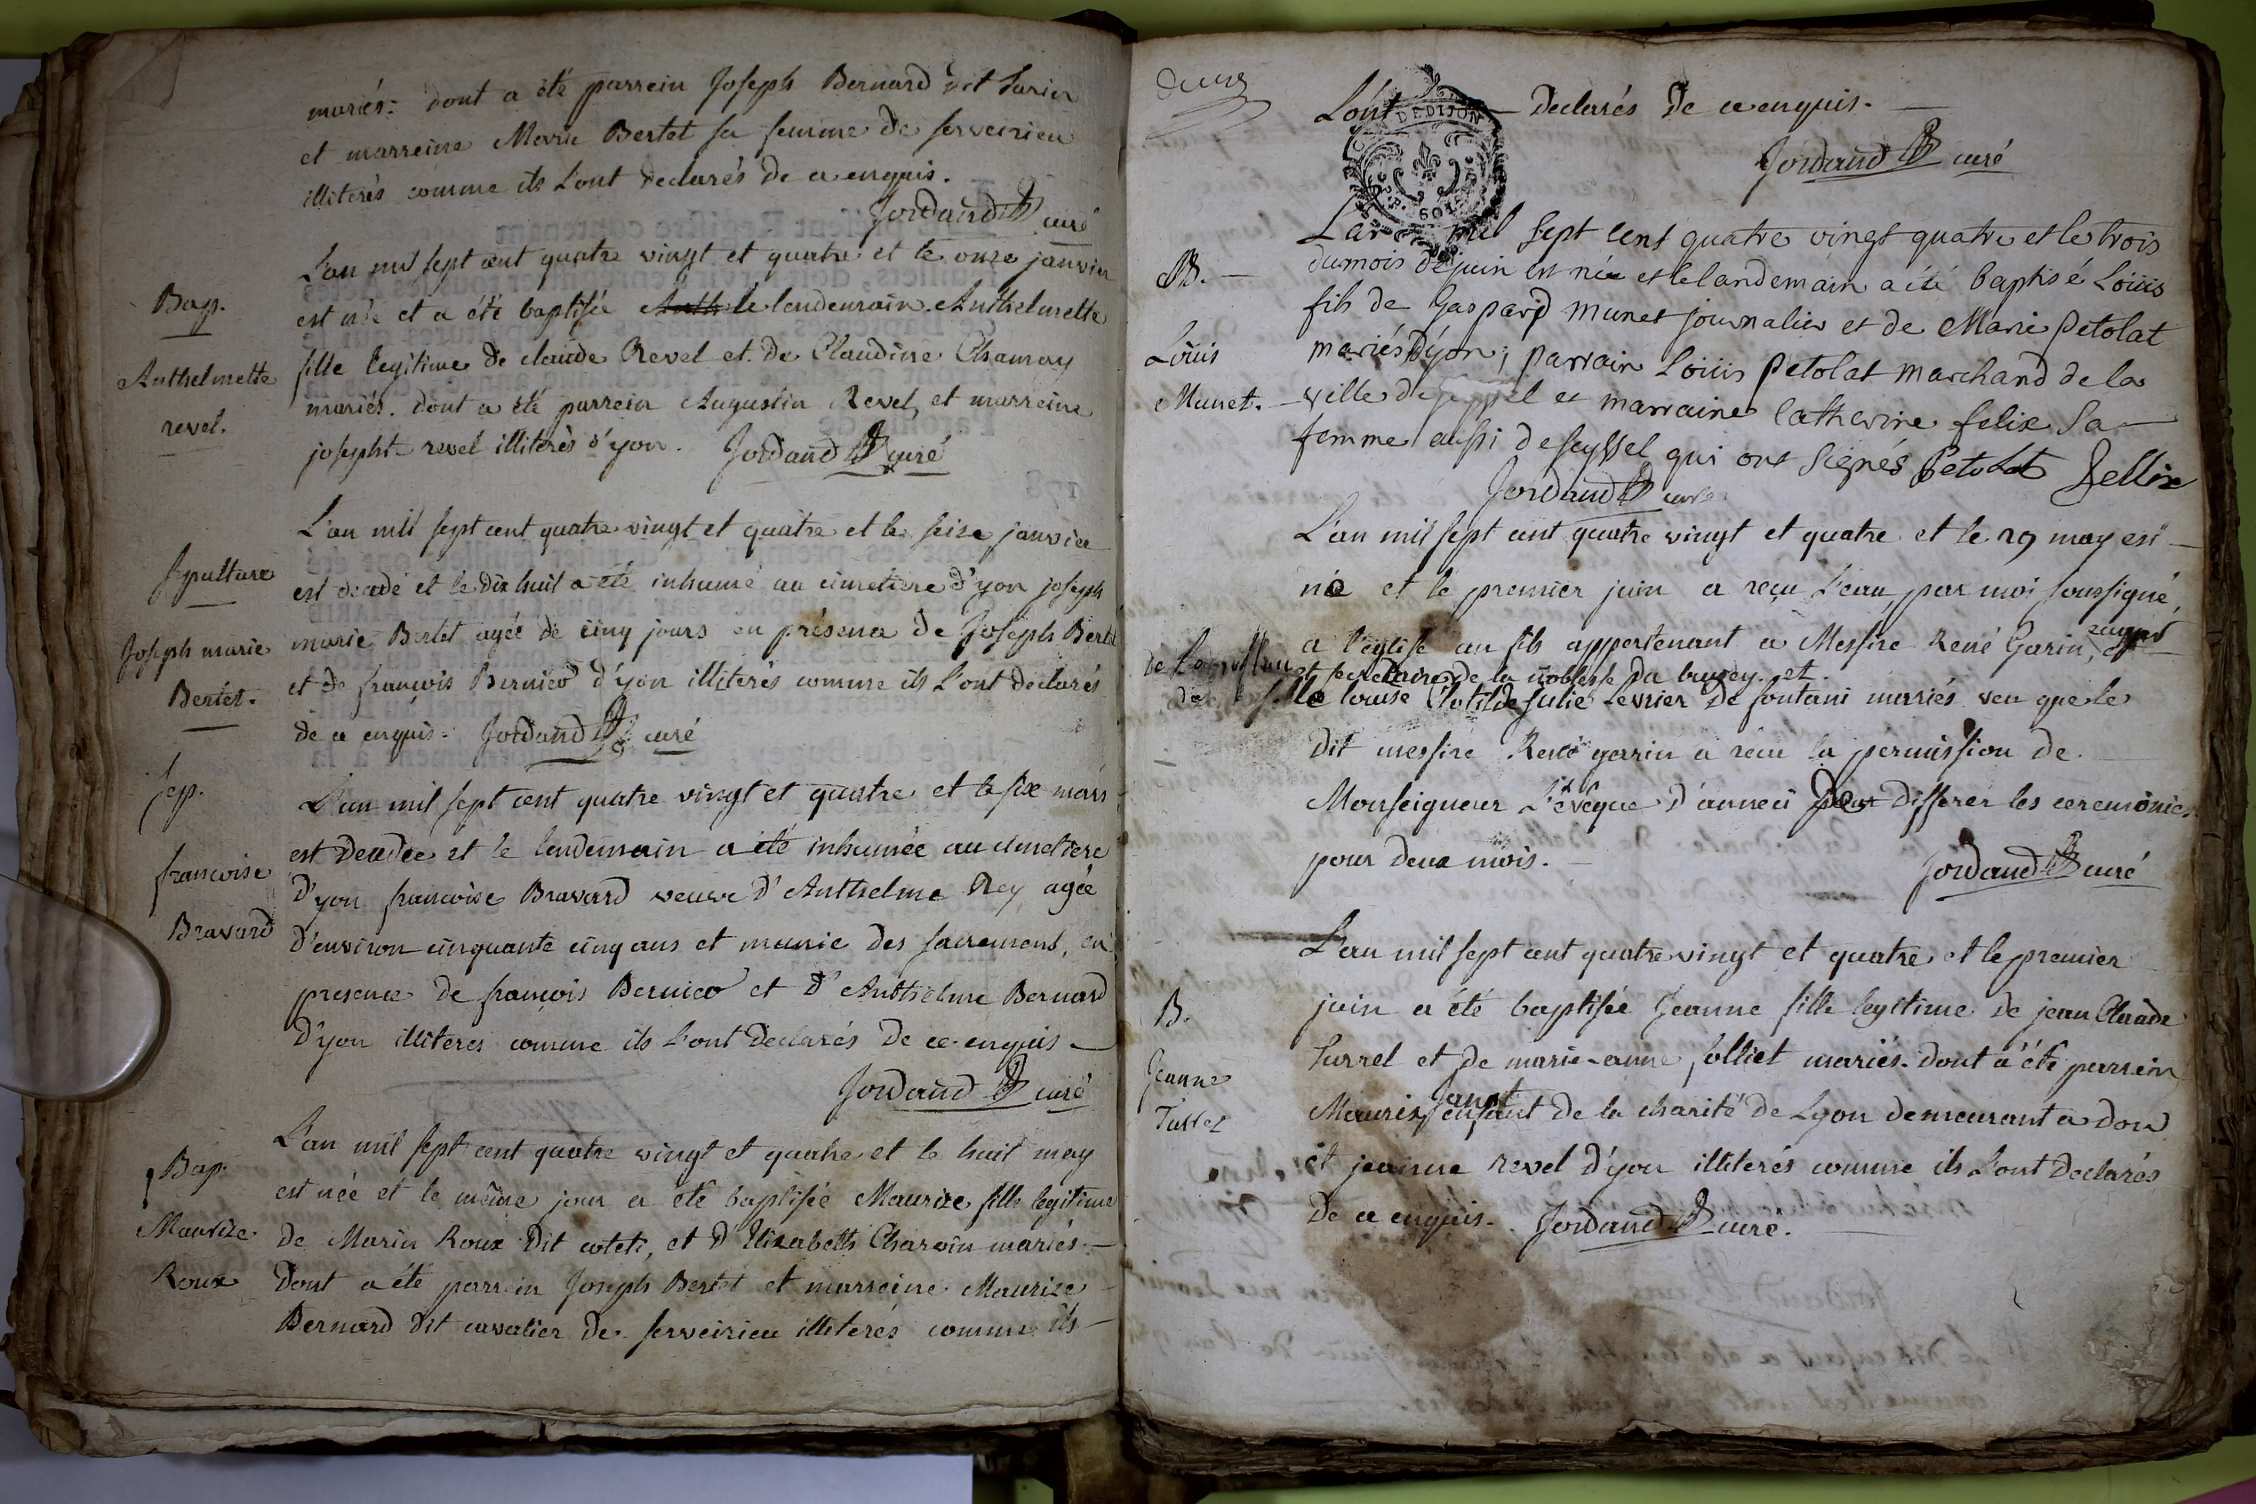 mariés: dont a été parrein Joseph Bernard dit Surin
et marreine Marie Bertet sa femme de serveirieu
illiterés comme ils L'ont declarés de ce enquis.
Jordand curé
Bap.
Anthelmette
revel.
L'an mil sept cent quatre vingt et quatre et le onze janvier
est née et a été baptisée Anth le lendemain Anthelmette
fille legitime de claude Revel et de Claudine Chamay
mariés. dont a été parrein Augustin Revel, et marreine
josepht revel illiterés d'yon. Jordand curé
sepulture
Joseph marie
Bertet.
L'an mil sept cent quatre vingt et quatre et le seize janvier
est decedé et le dix huit a été inhumé au cimetiere d'yon joseph
marie Bertet agée de cinq jours en présence de Joseph Bertet
et de françois Bernico d'yon illiterés comme ils L'ont declarés
de ce enquis. Jordand curé
sep.
françoise
Bravard
L'an mil sept cent quatre vingt et quatre et le six mars
est decedée et le lendemain a été inhumée au cimetiere
d'yon françoise Bravard veuve d'Anthelme Rey agée
d'environ cinquante cinq ans et munie des sacremens, en
presence de françois Bernico et d'Anthelme Bernard
d'yon illiteres comme ils L'ont declarés de ce enquis
Jordand curé
Bap.
Maurize
Roux
L'an mil sept cent quatre vingt et quatre et le huit may
est née et le même jour a été baptisée Maurize fille legitime
de Marin Roux dit coteti, et d'Elizabeth Charvin mariés
Dont a été parrein Joseph Bertet et marreine Maurize
Bernard dit cavalier de serveirieu illiterés comme ils
L'ont declarés de ce enquis.
DE DIJON
Jordand curé
B.
Louis
Munet.
L'an mil sept cent quatre vingt quatre et le trois
du mois de juin est née et le landemain a été baptisé Louis
fils de Gaspard munet journalier et de Marie Petolat
mariés d'yon; parrain Louis Petolat marchand de la
ville de seyssel et marraine Catherine felix sa
femme aussi de seyssel qui ont signés Petolat Fellix
Jordand curé
L'an mil sept cent quatre vingt et quatre et le 29 may est
née et le premier juin a reçu L'eau par moi soussigné,
a l'eglise un fils appartenant a Messire René Garin,
et secretaire de la noblesse du bugey. et
louise Clotilde Julie Levrier de fontani mariés veu que le
dit messire René garin a reçu la permission de
Monseigneur L'évêque d'anneci pour differer les ceremonies
pour deux mois.
Jordand curé
B.
Jeanne
L'an mil sept cent quatre vingt et quatre et le premier
juin a été baptisée Jeanne fille legitime de jean Claude
Surrel et de marie-anne folliet mariés. dont a été parrein
Maurix enfant de la charité de Lyon demeurant a don
et jeanne revel d'yon illiterés comme ils L'ont declarés
de ce enquis. Jordand curé.